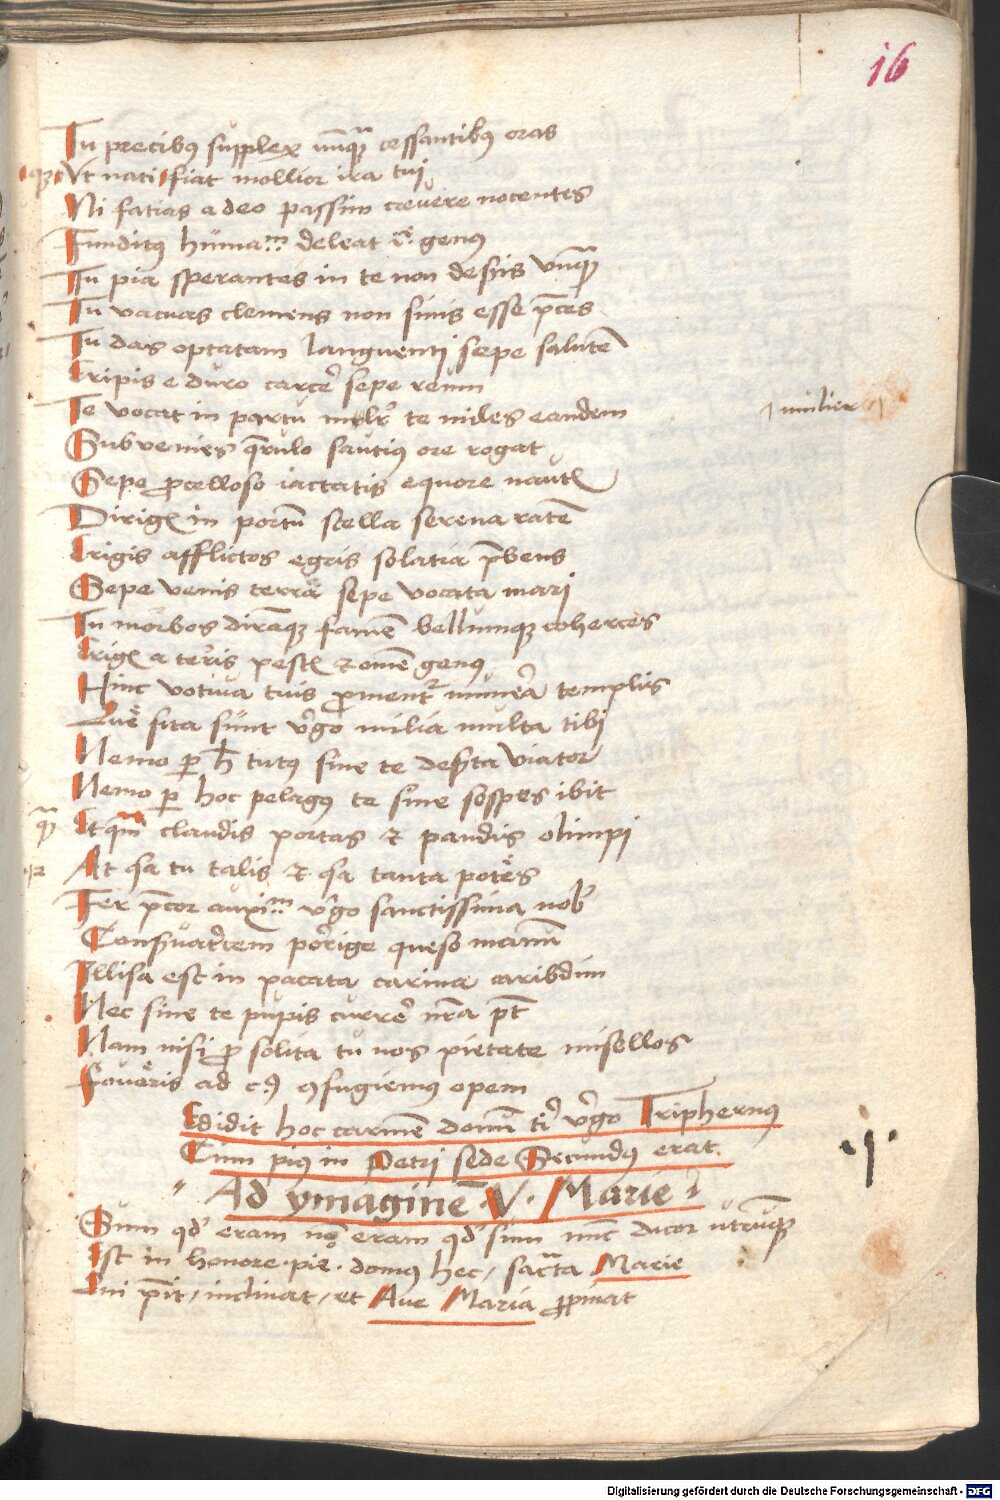 16
Tu precibus supplex nunquam cessantibus oras
que Ut nati fiat mollior ira tui
Ni facias a deo passim cevere nocentes
Funditus humanum deleat ira genus
Tu pia sperantes in te non deseris unquam
Tu vacuas clemens non sinis esse preces
Tu das optatam languenti sepe salutem
Eripis e duro carcere sepe reum
Te vocat in partu mulier te uides eandem mulier
Subvenies querulo sautius ore rogat
Sepe procelloso iactatis equore nautis
Dirigis in portum stella serena ratem
Erigis afflictos egris solatia prebens
Sepe venis terra sepe vocata mari
Tu morbos diramque famem bellumque coherces
Erigis a terris pestis et omne genus
Hinc votiva tuis promentur munera templis
Que sita sunt virgo milia multa tibi
Nemo per hec tutus sine te deserta viator
Nemo per hoc pelagus te sine sospes ibit
Et quoniam claudis portas et pandis olimpi
At quia tu talis et quia tanta potes
Fer precor auxilium virgo sanctissima nobis
Conservatricem porrige queso manum
Illisa est in pacata carina caribdim
Nec sine te pupis currere nostra potest
Nam nisi pro solita tu nos pietate misellos
Foveris ad cuius confugiemus opem
Edidit hoc carmen domini tibi virgo Triphernus
Cum pius in Petri sede Secundus erat.
Ad ymaginem V. Marie
Sum quod eram non eram quod sum nunc dicor utrumque
Est in honore pie domus hec sacrata Marie
Qui transit, inclinat, et Ave Maria propinat
Digitalisierung gefördert durch die Deutsche Forschungsgemeinschaft - DFG